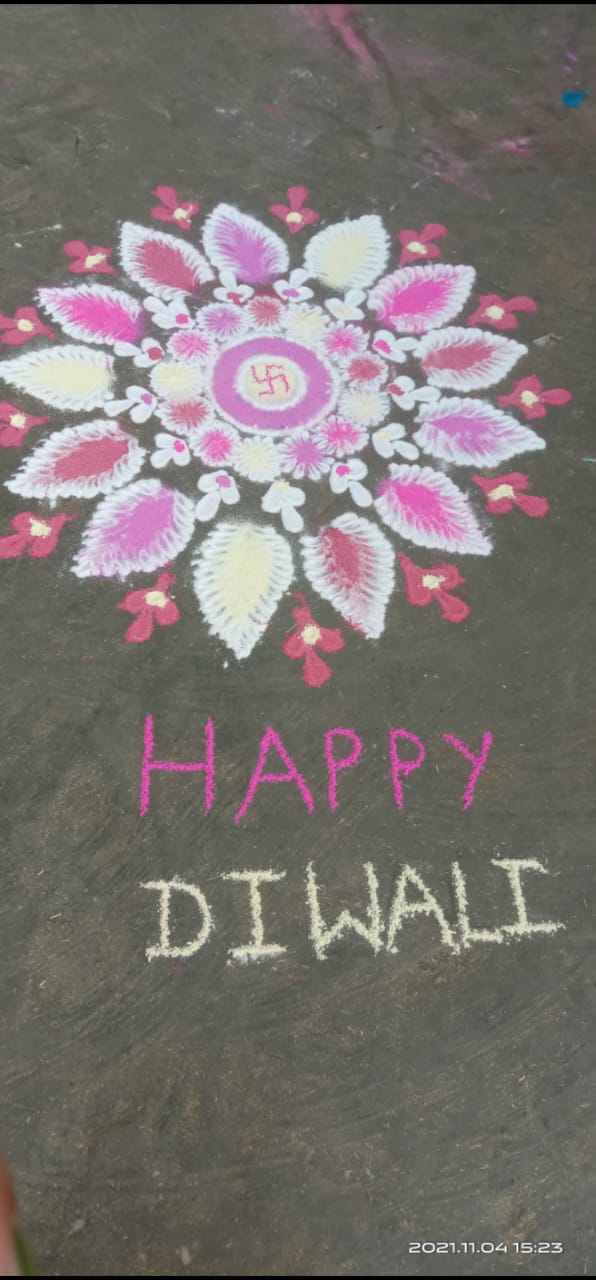 HAPPY
DIWALI
2021.11.04 15:23